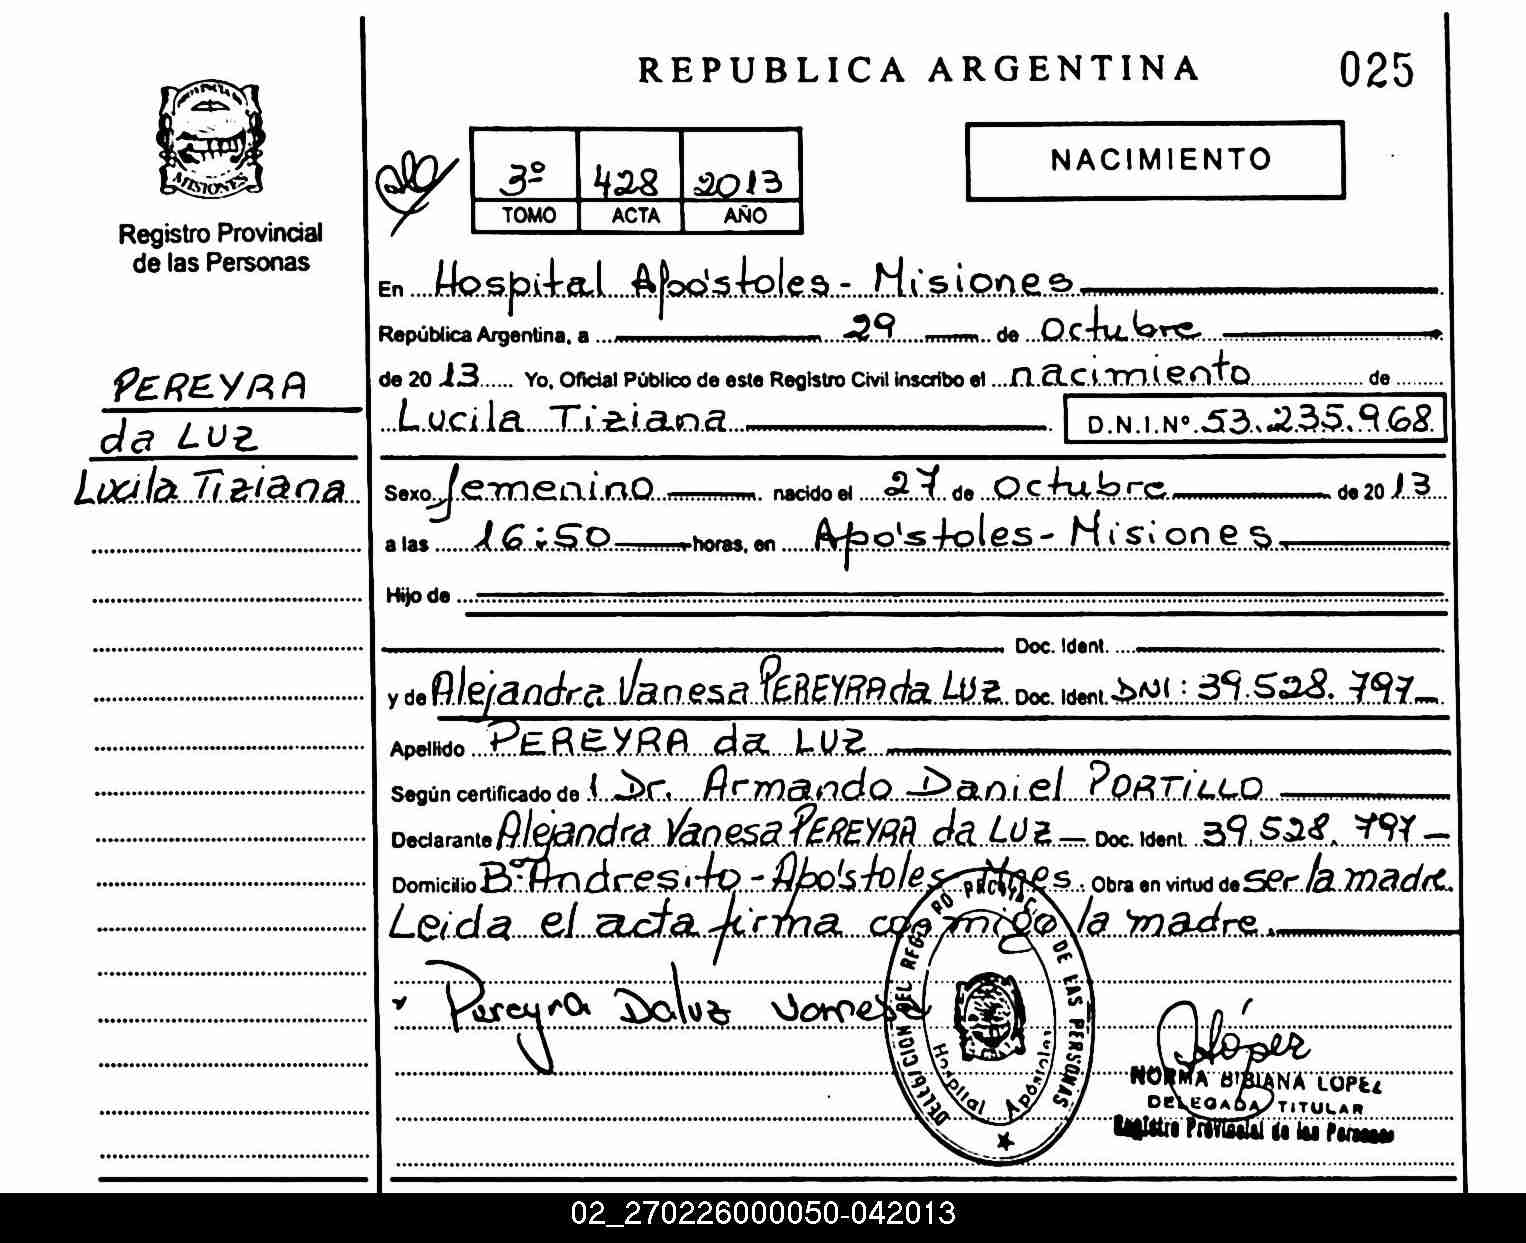 REPUBLICA ARGENTINA
025
MISIONES
Registro Provincial
de las Personas
3º 428 2013
TOMO ACTA AÑO
NACIMIENTO
En Hospital Apóstoles - Misiones
República Argentina, a 29 de Octubre
de 2013 Yo, Oficial Público de este Registro Civil inscribo el nacimiento de
Lucila Tiziana D.N.I.Nº 53.235.968
PEREYRA
da LUZ
Lucila Tiziana
Sexo femenino nacido el 27 de Octubre de 2013
a las 16:50 horas, en Apóstoles - Misiones
Hijo de
Doc. Ident.
y de Alejandra Vanesa PEREYRA da LUZ Doc. Ident. DNI: 39.528.797
Apellido PEREYRA da LUZ
Según certificado de Dr. Armando Daniel PORTILLO
Declarante Alejandra Vanesa PEREYRA da LUZ Doc. Ident. 39.528.797
Domicilio Bº Andresito - Apóstoles Mnes. Obra en virtud de ser la madre.
Leida el acta firma conmigo la madre.
Pereyra Daluz Vanesa
DELEGACION DEL REGISTRO PROVINCIAL DE LAS PERSONAS
Hospital Apóstoles
López
NORMA BIBIANA LOPEZ
DELEGADA TITULAR
Registro Provincial de las Personas
02_270226000050-042013